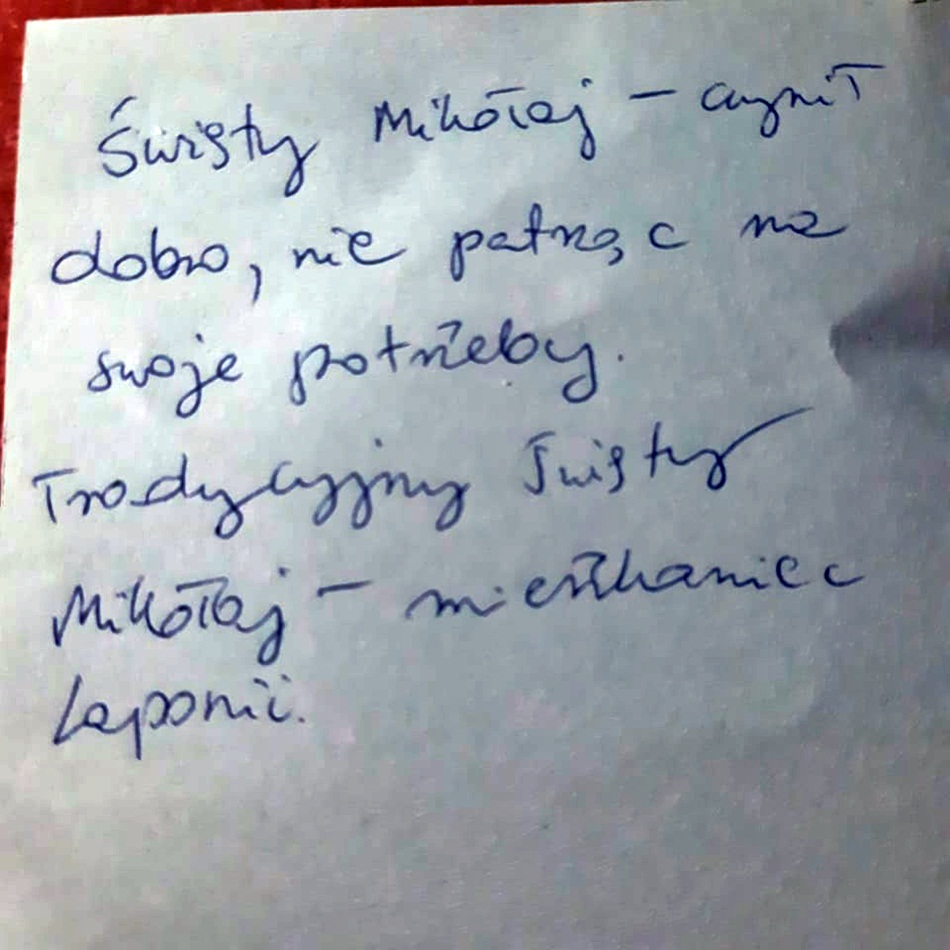 Święty Mikołaj – czynił
dobro, nie patrząc na
swoje potrzeby.
Tradycyjny Święty
Mikołaj – mieszkaniec
Laponii.